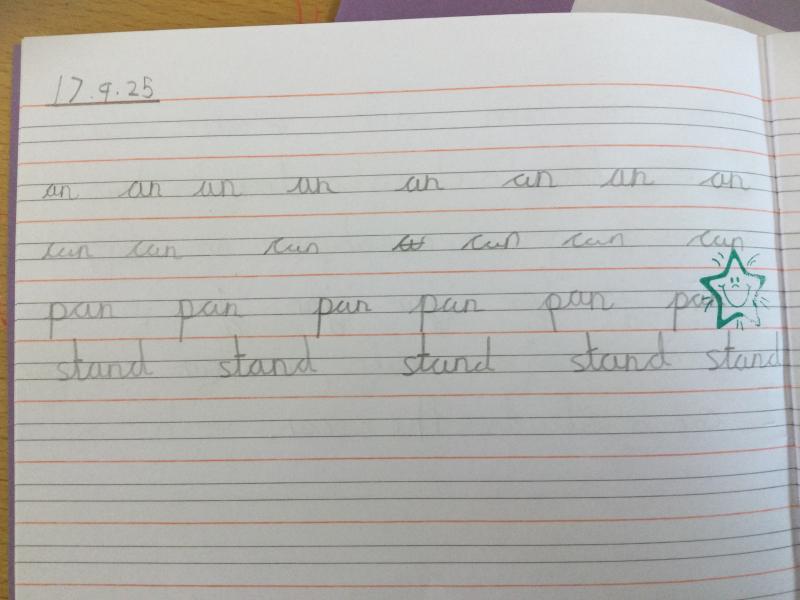 17.9.25
an an an an an an an an
can can can can can can
pan pan pan pan pan pan
stand stand stand stand stand